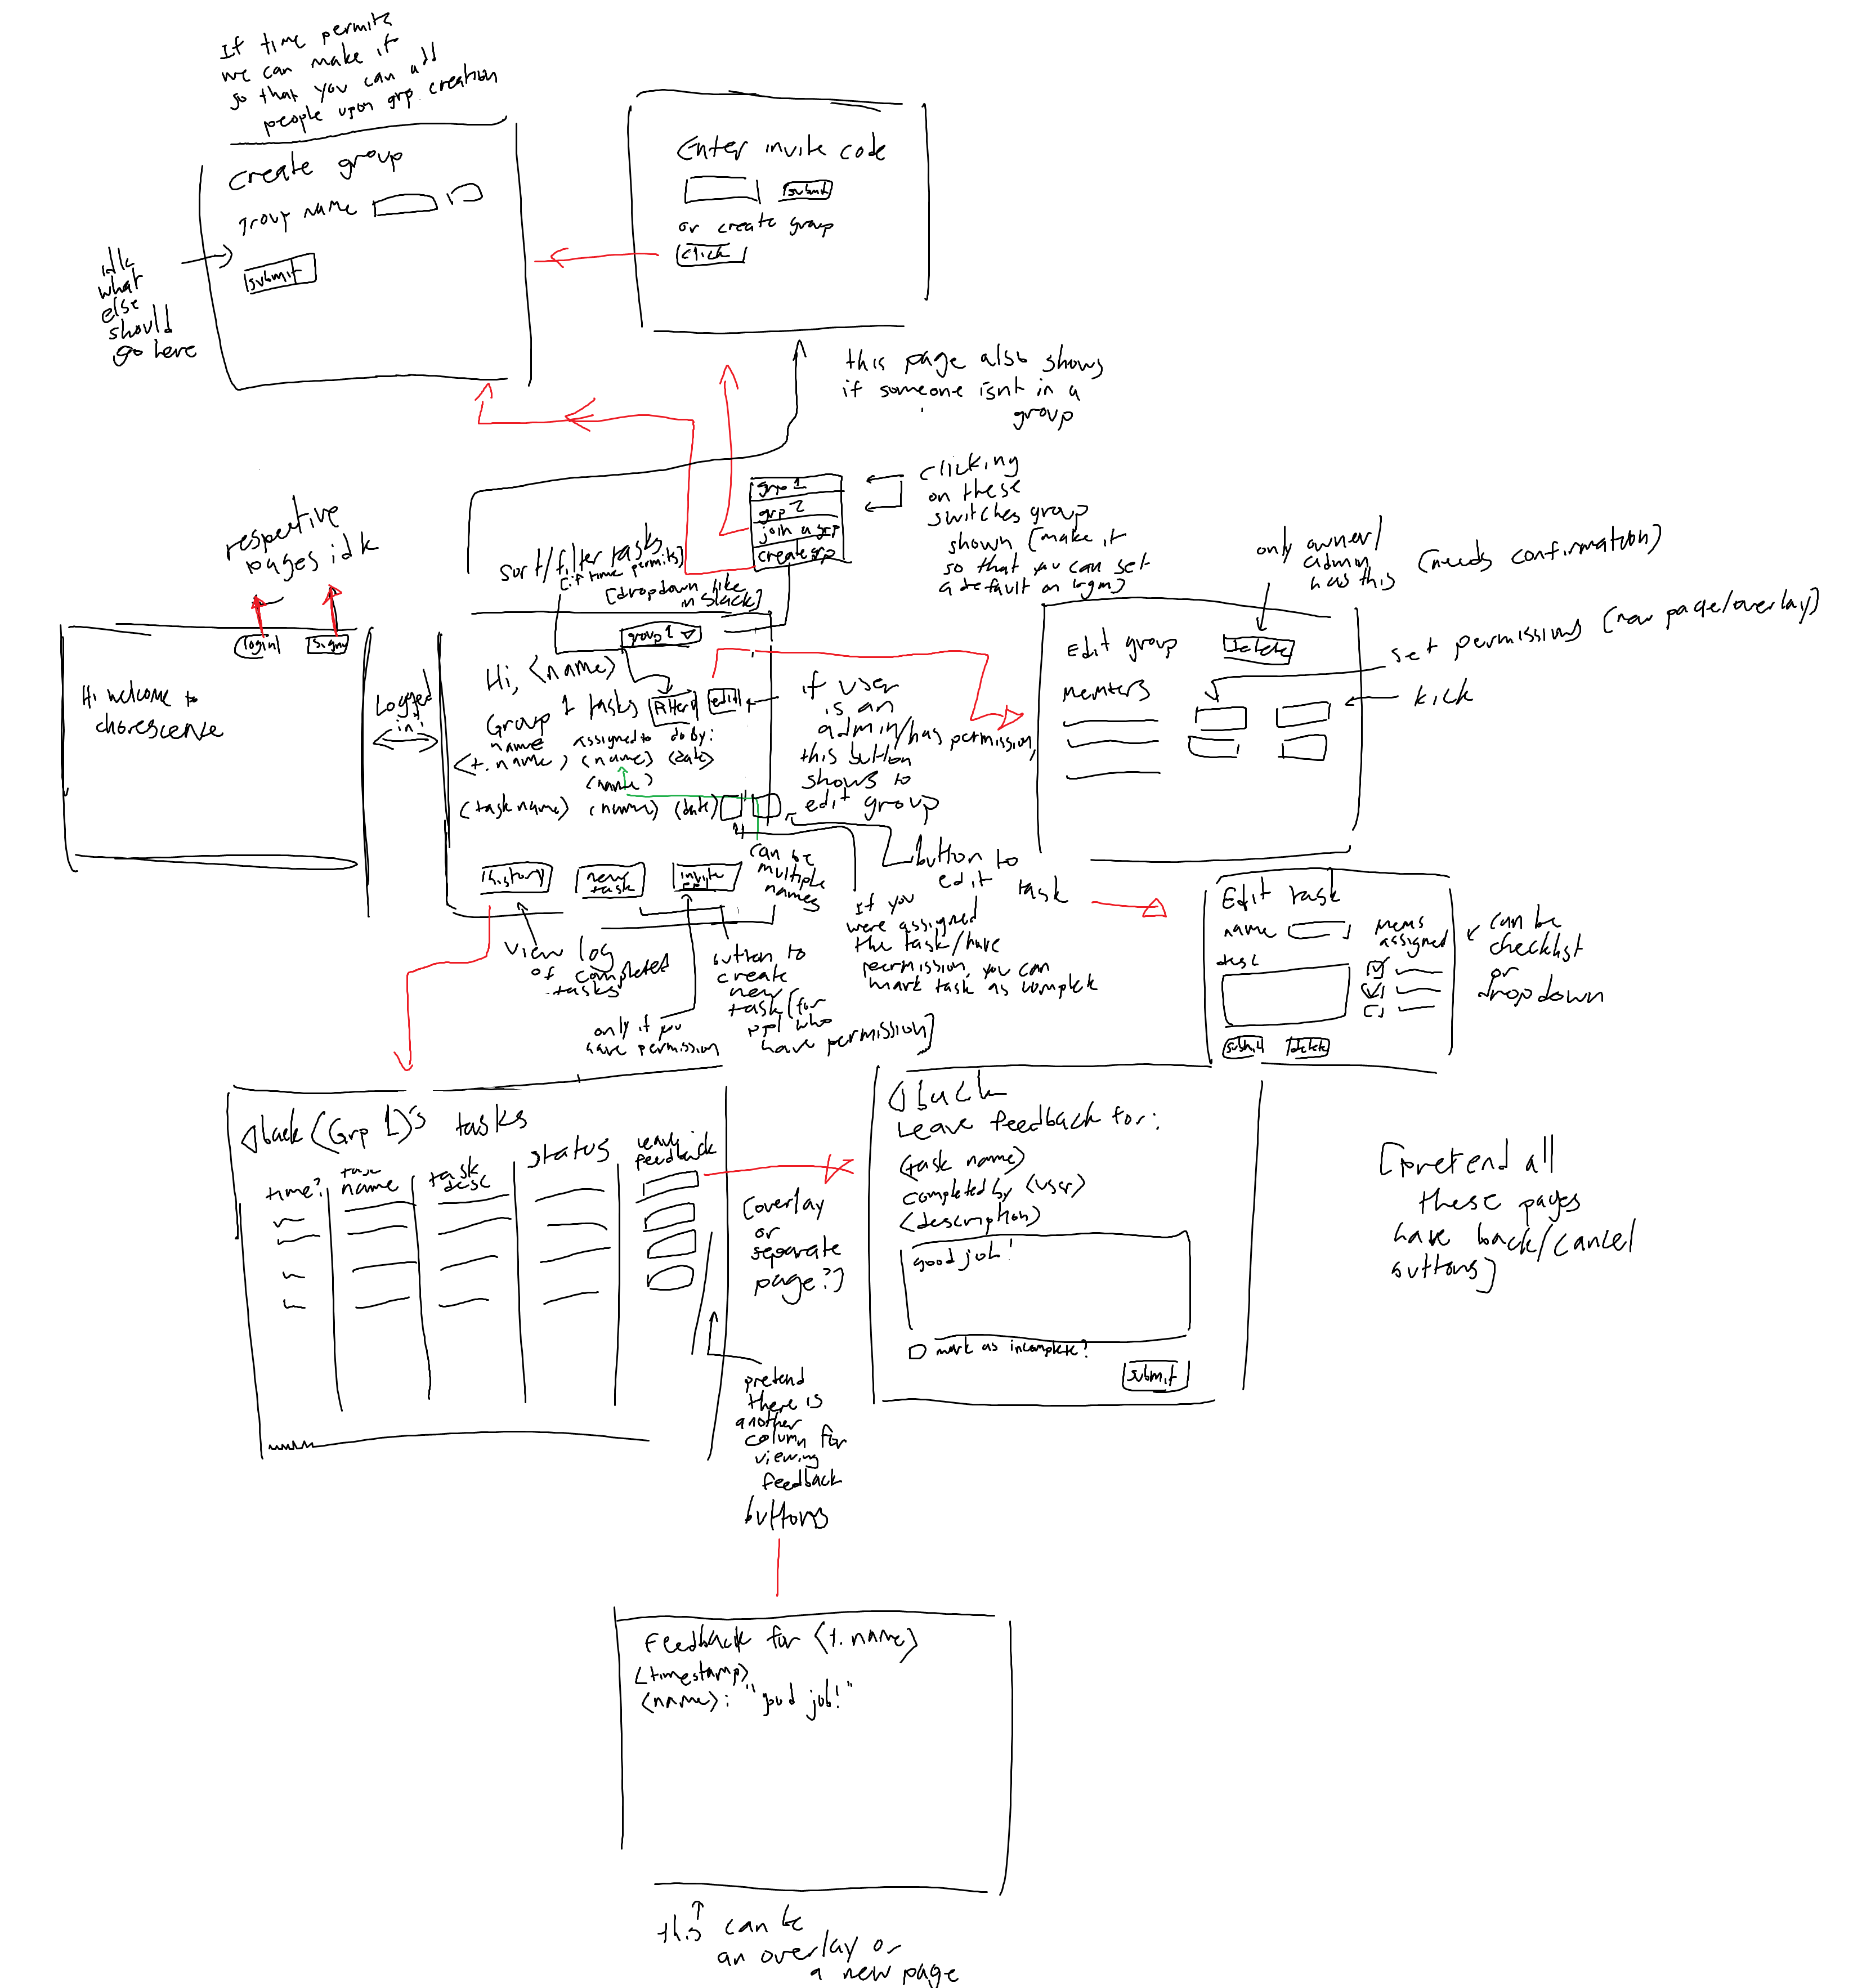 If time permits
we can make it
so that you can add
people upon grp. creation
create group
group name
submit
idk
what
else
should
go here
Enter invite code
submit
or create group
click
this page also shows
if someone isnt in a
group
grp 1
grp 2
join a grp
create grp
clicking
on these
switches group
shown [make it
so that you can set
a default on login]
respective
pages idk
login
signup
Hi welcome to
chorescence
Logged
in
sort/filter tasks
[if time permits]
[dropdown like
in Slack]
group 1
Hi, <name>
Group 1 tasks
filter
edit
name assigned to do by:
<t. name> <name> <date>
<name>
<task name> <name> <date>
history
new
task
invite
can be
multiple
names
if user
is an
admin/has permission,
this button
shows to
edit group
button to
edit task
If you
were assigned
the task/have
permission, you can
mark task as complete
view log
of completed
tasks
only if you
have permission
button to
create
new
task [for
ppl who
have permission]
only owner/
admin
has this
(needs confirmation)
set permissions [new page/overlay]
kick
Edit group
Delete
members
Edit task
name
mems
assigned
desc
submit
delete
can be
checklist
or
dropdown
back <Grp 1>'s tasks
time?
task
name
task
desc
status
leave
feedback
[overlay
or
separate
page?]
pretend
there is
another
column for
viewing
feedback
buttons
back
Leave feedback for:
<task name>
completed by <user>
<description>
good job!
mark as incomplete?
submit
[pretend all
these pages
have back/cancel
buttons]
Feedback for <t. name>
<timestamp>
<name>: "good job!"
this can be
an overlay or
a new page